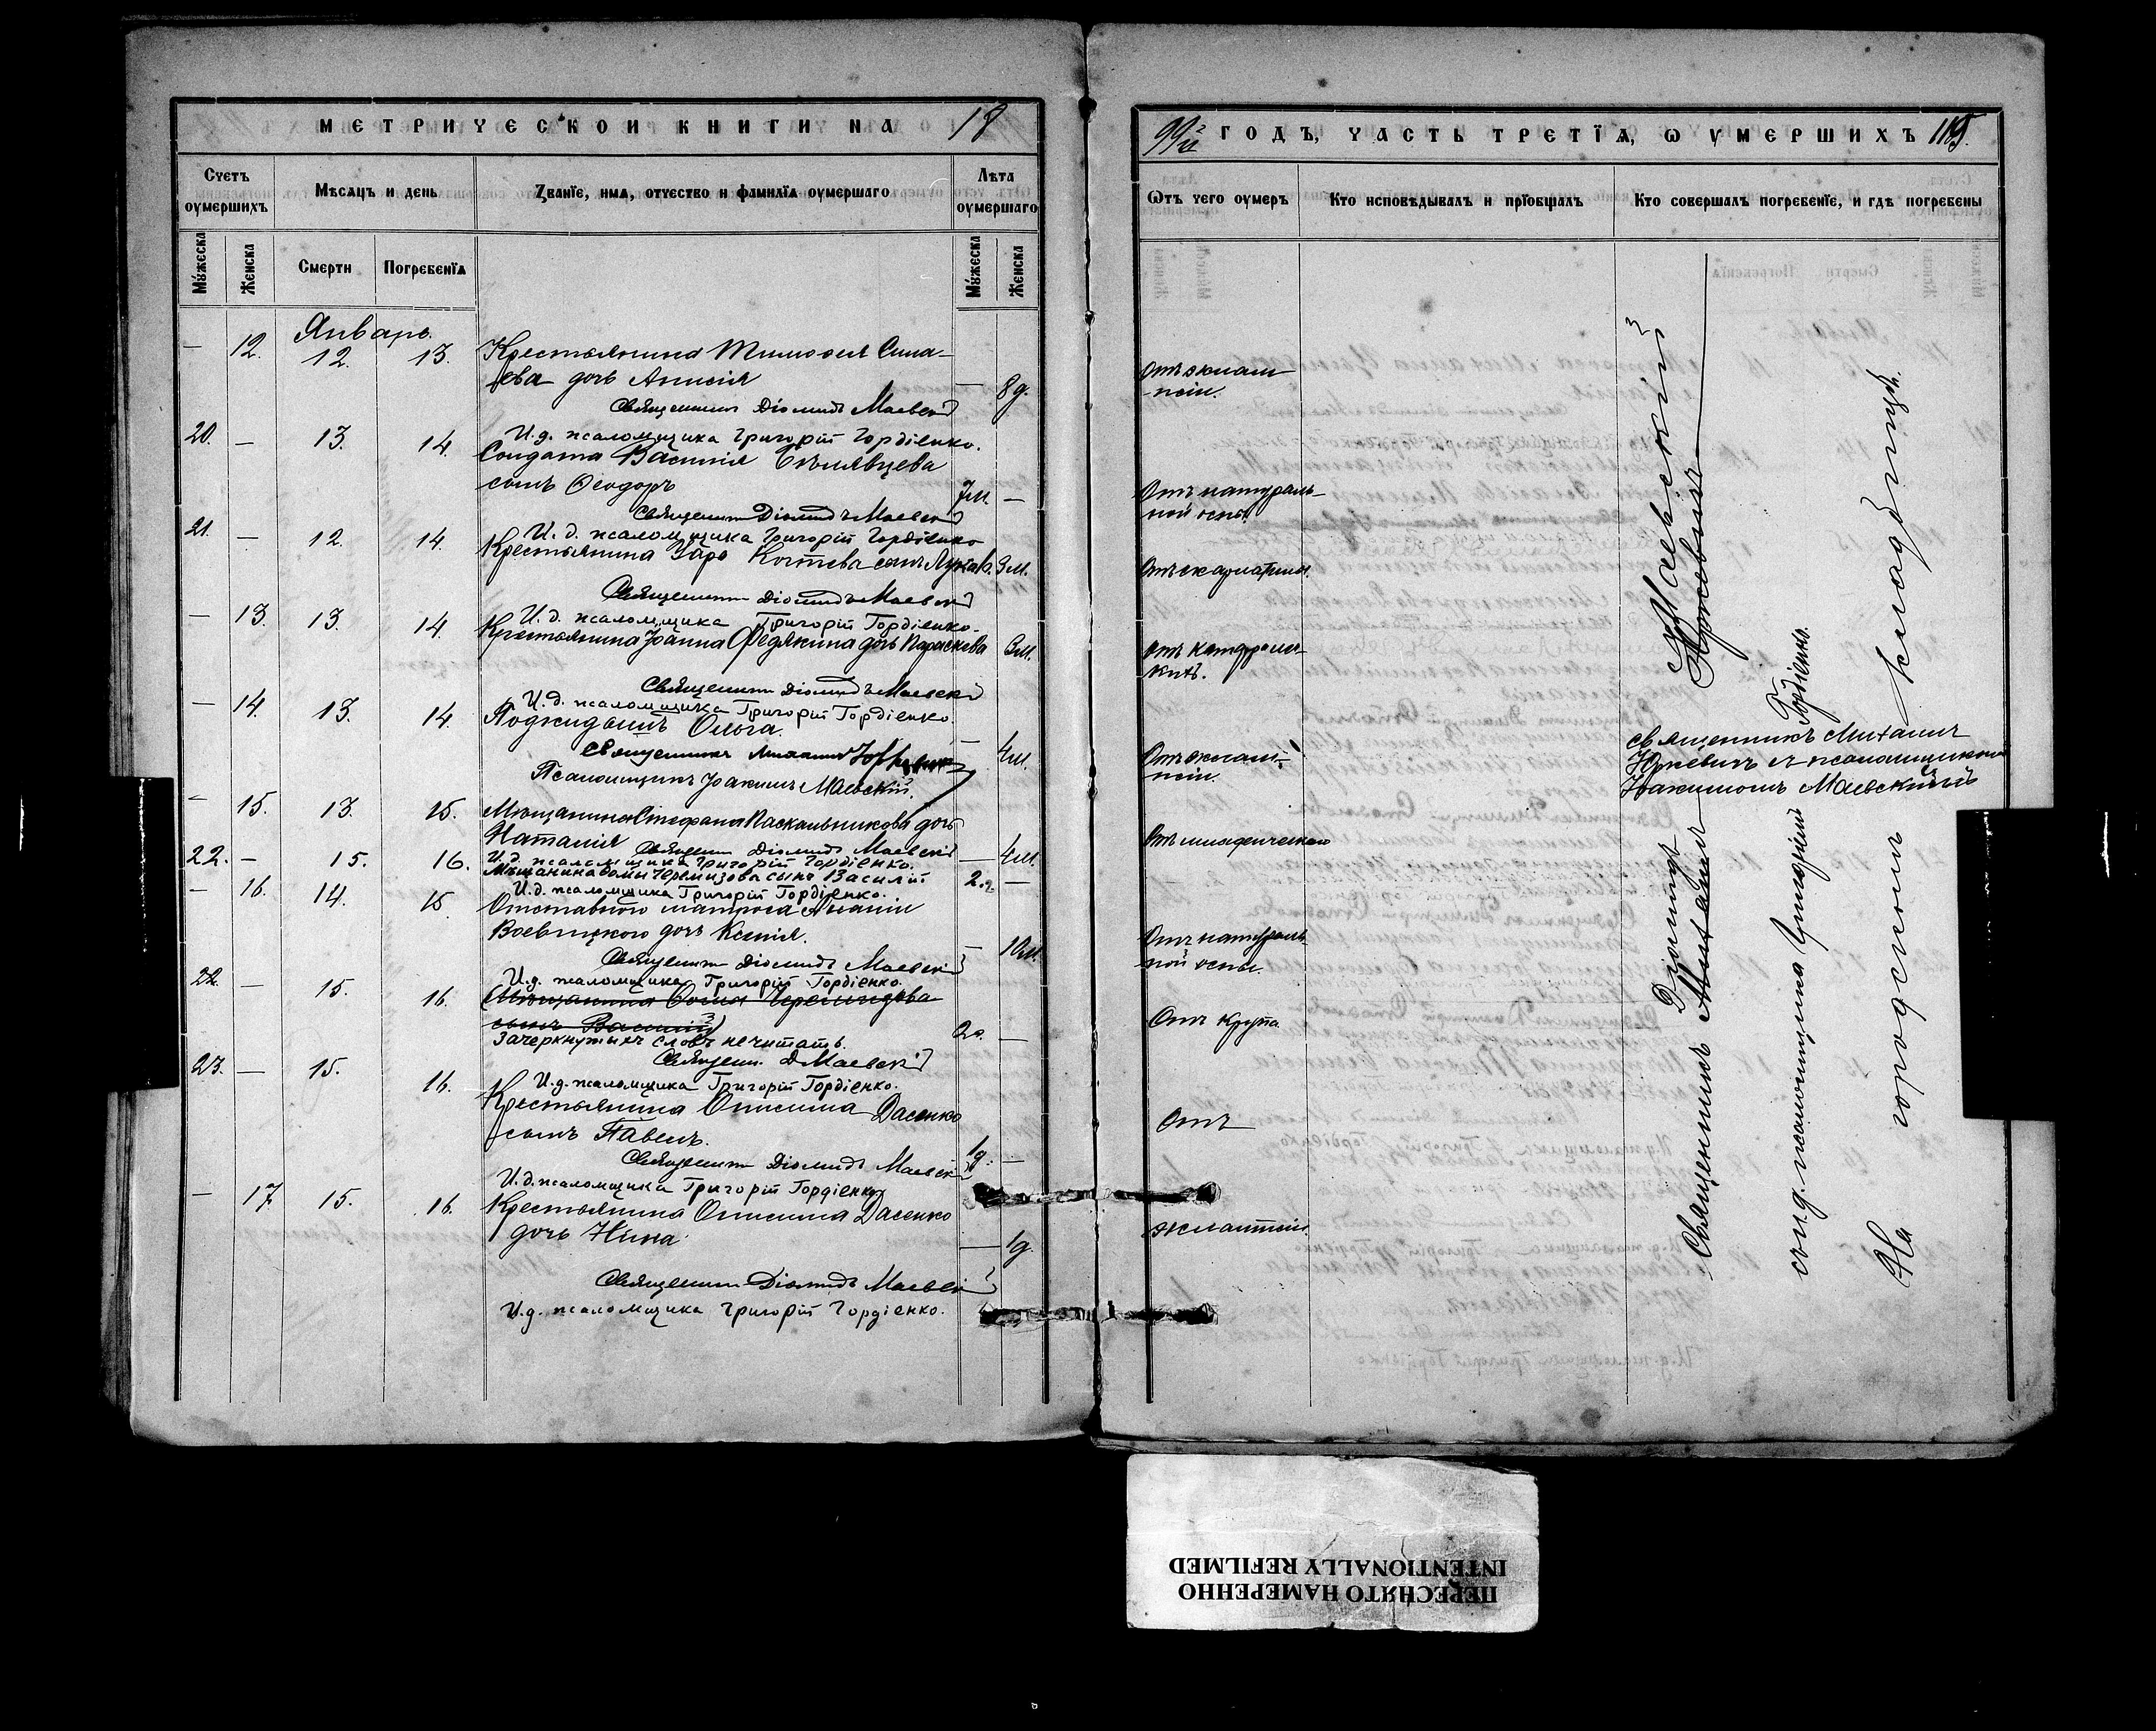 МЕТРИЧЕСКОЙ КНИГИ НА 18
Счетъ оумершихъ
Мѣсяцъ и день
Званїе, имя, отчество и фамилїя оумершаго
Лѣта оумершаго
Мужеска
Женска
Смерти
Погребенїя
Мужеска
Женска
Январь.
— 12. 12. 13. Крестьянина Тимофея Сина-
ева дочь Анисія — 8 д.
Священникъ Діомидъ Маевскій
И. д. псаломщика Григорій Гордіенко.
20. — 13. 14. Солдата Василія
сынъ Ѳеодоръ 7 м. —
Священникъ Діомидъ Маевскій
И. д. псаломщика Григорій Гордіенко
21. — 12. 14. Крестьянина сынъ 3 м.
Священникъ Діомидъ Маевскій
И. д. псаломщика Григорій Гордіенко.
— 13. 13. 14. Крестьянина Іоанна Федякина дочь Параскева 3 м.
Священникъ Діомидъ Маевскій
И. д. псаломщика Григорій Гордіенко.
— 14. 13. 14. Подкидышъ Ольга.
— 4 м.
Священникъ Михаилъ Юркевичъ
Псаломщикъ Іоакимъ Маевскій.
— 15. 13. 15. Мѣщанина Стефана Паскальникова дочь
Наталія — 4 м.
Священникъ Діомидъ Маевскій
И. д. псаломщика Григорій Гордіенко.
22. — 15. 16. Мѣщанина Ѳомы сынъ Василій 2 г. —
И. д. псаломщика Григорій Гордіенко.
— 16. 14. 15. Отставного матроса
дочь Ксенія. — 10 м.
Священникъ Діомидъ Маевскій
И. д. псаломщика Григорій Гордіенко.
22. — 15. 16. (Мѣщанина Ѳомы
сынъ Василій) 2 г. —
Зачеркнутыхъ словъ не читать.
Священ. Д Маевскій
И. д. псаломщика Григорій Гордіенко.
23. — 15. 16. Крестьянина Онисима Дасенко
сынъ Павелъ. 1 д. —
Священникъ Діомидъ Маевскій
И. д. псаломщика Григорій Гордіенко
— 17 15. 16. Крестьянина Онисима Дасенко
дочь Нина — 1 д.
Священникъ Діомидъ Маевскій
И. д. псаломщика Григорій Гордіенко.
99й ГОДЪ, ЧАСТЬ ТРЕТЇЯ, Ѡ УМЕРШИХЪ 115.
Ѿтъ чего оумеръ
Кто исповѣдывалъ и прїобщалъ
Кто совершалъ погребенїе, и гдѣ погребены
Отъ эклам-
псіи.
Отъ натураль-
ной оспы.
Отъ скарлатины.
Отъ
Отъ эклам-
псіи.
Отъ младенческой
Отъ натураль-
ной оспы.
Отъ крупа
Отъ
эклампсіи.
Священникъ Діомидъ Маевскій
Михаилъ Юркевичъ
съ и. д. псаломщика Григоріемъ Гордіенко.
Священникъ Михаилъ
Юркевичъ съ псаломщикомъ
Іоакимомъ Маевскимъ
На городскомъ кладбищѣ.
ПЕРЕСНЯТО НАМЕРЕННО
INTENTIONALLY REFILMED